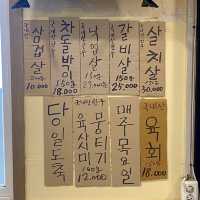 삼겹살
10,000
차돌박이
150g
18,000
낙엽살
150g
27,000
갈비살
150g
25,000
살치살
150g
30,000
당일도축
육사시미
뭉티기
12,000
매주목요일
육회
18,000